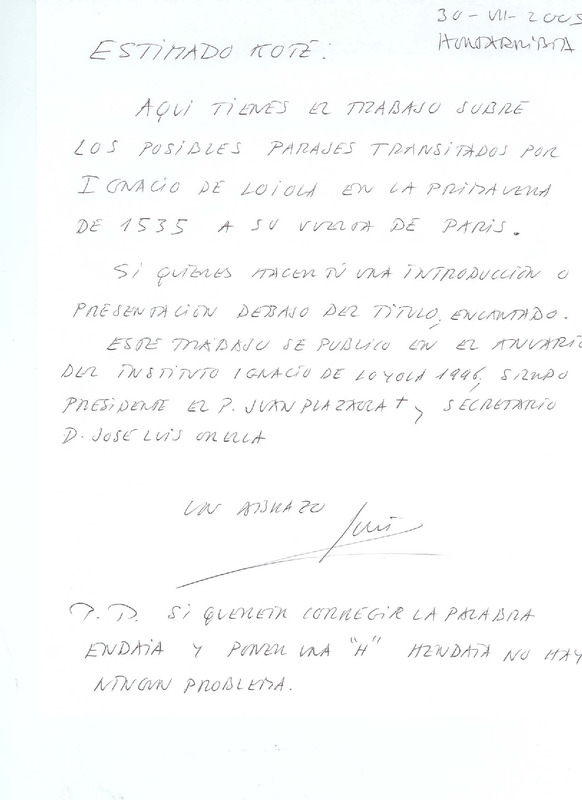 30-VII-2005
HONDARRIBIA
ESTIMADO KOTE:
AQUI TIENES EL TRABAJO SOBRE
LOS POSIBLES PARAJES TRANSITADOS POR
IGNACIO DE LOIOLA EN LA PRIMAVERA
DE 1535 A SU VUELTA DE PARIS.
SI QUIERES HACER TÚ UNA INTRODUCCIÓN O
PRESENTACIÓN DEBAJO DEL TITULO, ENCANTADO.
ESTE TRABAJO SE PUBLICO EN EL ANUARIO
DEL INSTITUTO IGNACIO DE LOYOLA 1996, SIENDO
PRESIDENTE EL P. JUAN PLAZAOLA † y SECRETARIO
D. JOSÉ LUIS ORELLA
UN ABRAZO Luis
P.D. SI QUEREIR CORREGIR LA PALABRA
ENDAIA Y PONER UNA "H" HENDAIA NO HAY
NINGUN PROBLEMA.